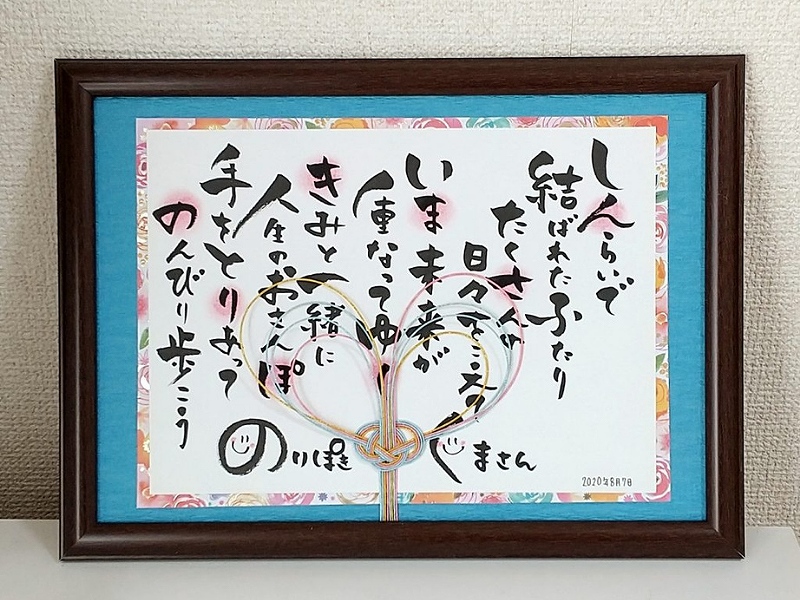 しんらいで
結ばれたふたり
たくさんの
日々をこえ
いま未来が
重なってゆく
きみと一緒に
人生のおさんぽ
手をとりあって
のんびり歩こう
のりぽき
じまさん
2020年8月7日